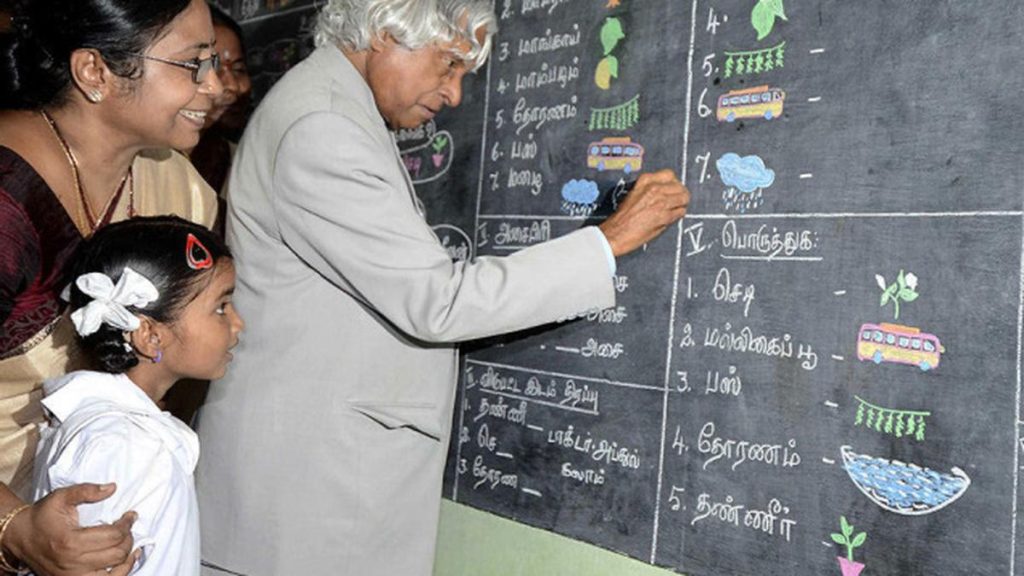 3 மாங்காய்
4 மாம்பழம்
5. தோரணம்
6. பஸ்
7. மழை
4.
5. -
6. -
7. -
அசைபிரி
அசை
அசை
__அசை
விடுபட்ட இடம் நிரப்பு
1. தண்ணீ_
2 செ_
3 தோரண__
டாக்டர்.அப்துல்
கலாம்
V. பொருத்துக:
1. செடி -
2. மல்லிகைப் பூ -
3. பஸ் -
4. தோரணம் -
5. தண்ணீர் -